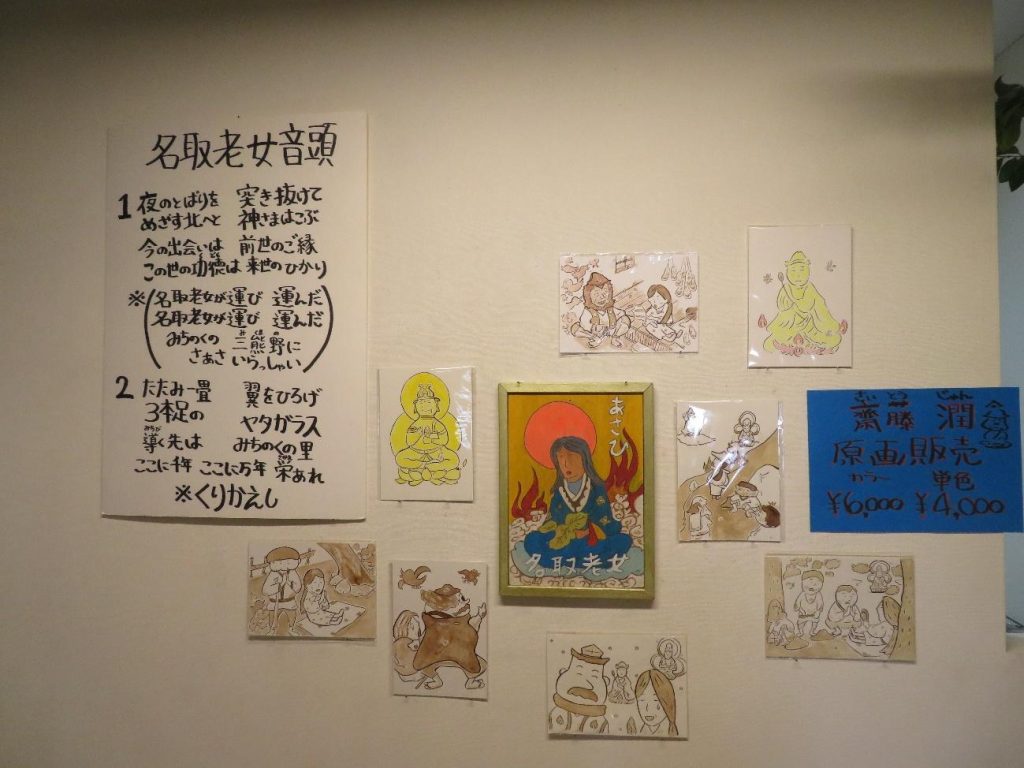 名取老女音頭
1 夜のとばりを 突き抜けて
めざす北へと 神さまはこぶ
今の出会いは 前世のご縁
この世の功徳は 来世のひかり
※(名取老女が運び 運んだ
名取老女が運び 運んだ
みちのくの 三熊野に
さぁさ いらっしゃい)
2 たたみ一畳 翼をひろげ
3本足の ヤタガラス
導く先は みちのくの里
ここに千年 ここに万年 栄あれ
※くりかえし
あさひ
名取老女
さいとう じゅん
齋藤 潤
原画販売
カラー 単色
¥6,000 ¥4,000